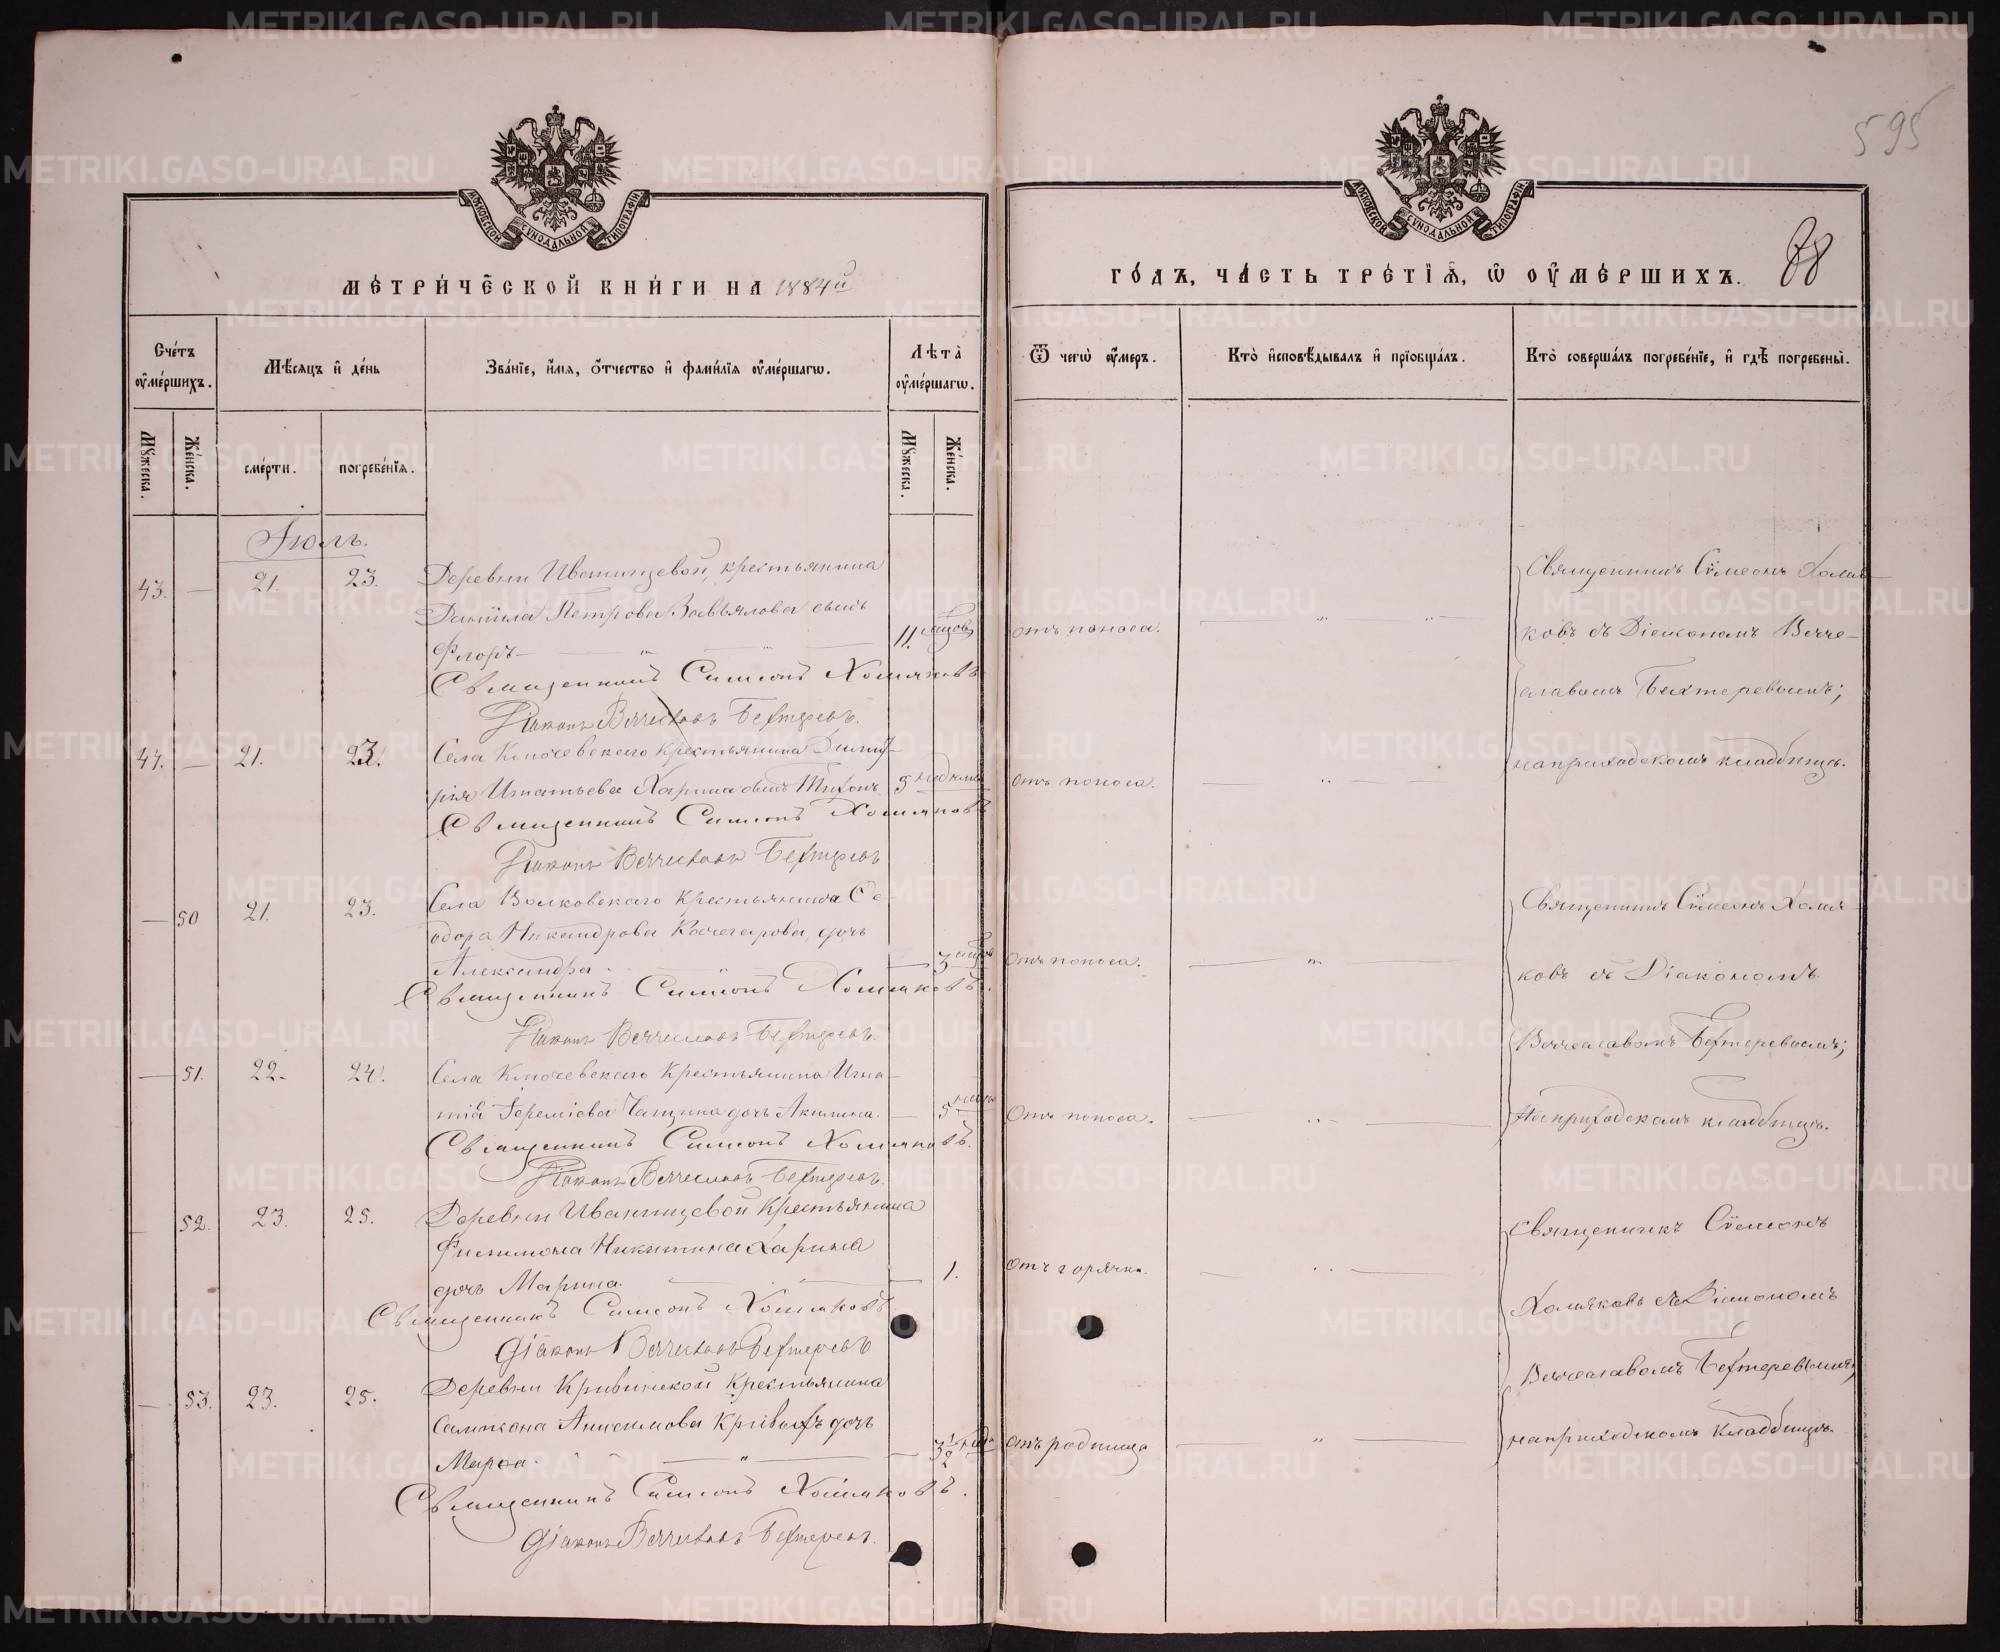 595
88
МОСКОВСКОЙ СѴНОДАЛЬНОЙ ТИПОГРАФІИ
МОСКОВСКОЙ СѴНОДАЛЬНОЙ ТИПОГРАФІИ
МЕТРИЧЕСКОЙ КНИГИ НА 1884й
ГОДЪ, ЧАСТЬ ТРЕТІЯ, Ѡ ОУМЕРШИХЪ.
Счетъ оумершихъ.
Мѣсяцъ и день
Званіе, имя, отчество и фамилія оумершагѡ.
Лѣта оумершагѡ.
Ѿ чегѡ оумеръ.
Кто исповѣдывалъ и пріобщалъ.
Кто совершалъ погребеніе, и гдѣ погребены.
Мужеска.
Женска.
смерти.
погребенія.
Мужеска.
Женска.
Іюль.
43. — 21. 23. Деревни Иваницевой, крестьянина
Даніила Петрова Завьялова сынъ
Флоръ — 11 отъ поноса.
Священникъ Симеонъ Хомяковъ
Діаконъ Вячеславъ Бехтеревъ.
Священникъ Сѵмеонъ Хомя-
ковъ съ Діакономъ Вяче-
славомъ Бехтеревымъ;
на приходскомъ кладбищѣ.
47. — 21. 23. Села Ключевскаго крестьянина Димит-
рія Игнатьева Харина сынъ Тихонъ. 5 недѣль отъ поноса.
Священникъ Симеонъ Хомяковъ
Діаконъ Вячеславъ Бехтеревъ
— 50 21. 23. Села Волковскаго крестьянина Ѳе-
одора Никандрова дочь
Александра. — 3 отъ поноса.
Священникъ Симеонъ Хомяковъ.
Діаконъ Вячеславъ Бехтеревъ.
Священникъ Сѵмеонъ Хомя-
ковъ съ Діакономъ
Вячеславомъ Бехтеревымъ;
на приходскомъ кладбищѣ.
— 51. 22. 24. Села Ключевскаго крестьянина Игна-
тія Іереміева дочь Акилина. — 5 Отъ поноса.
Священникъ Симеонъ Хомяковъ.
Діаконъ Вячеславъ Бехтеревъ.
— 52. 23. 25. Деревни Иваницевой крестьянина
Филимона Никитина Харина
дочь Марина. — 1. Отъ горячки.
Священникъ Симеонъ Хомяковъ
Діаконъ Вячеславъ Бехтеревъ
Священникъ Сѵмеонъ
Хомяковъ съ Діакономъ
Вячеславомъ Бехтеревымъ;
на приходскомъ кладбищѣ.
— 53. 23. 25. Деревни Кривинской крестьянина
Сампсона Анисимова Кривыхъ дочь
Марѳа. — 3 1/2 отъ родимца
Священникъ Симеонъ Хомяковъ.
Діаконъ Вячеславъ Бехтеревъ.
METRIKI.GASO-URAL.RU